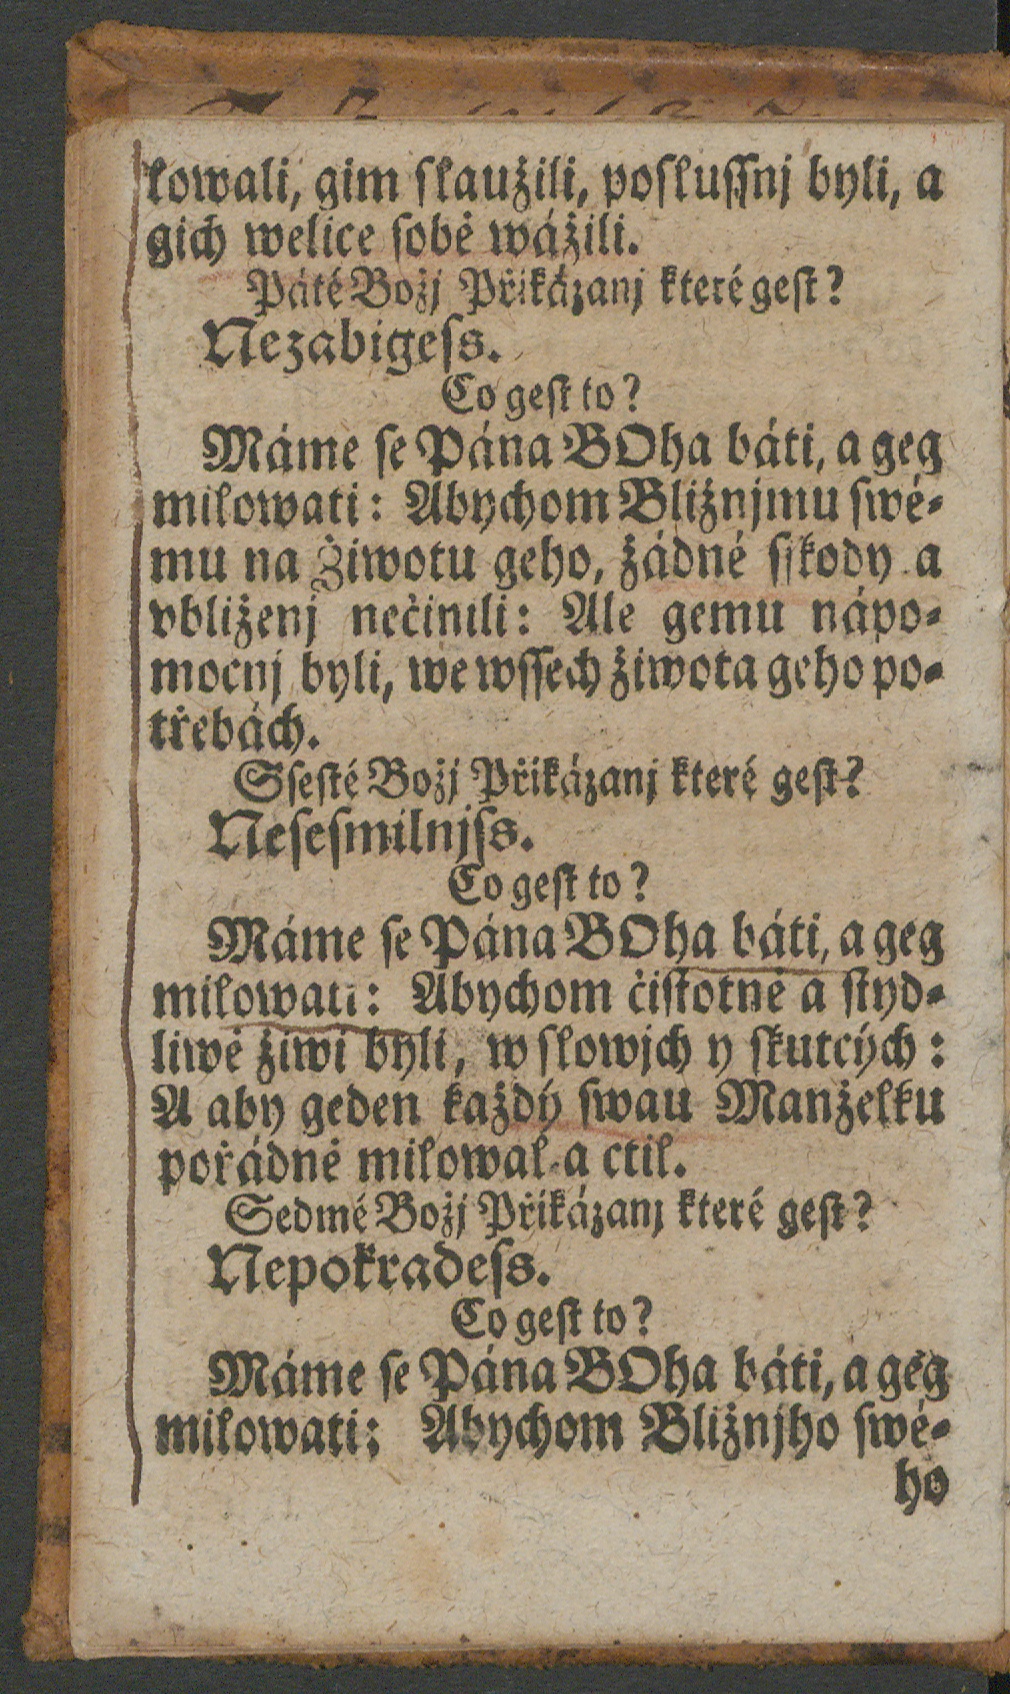 kowali, gim ſlaužili, poſluſſnj byli, a
gich welice ſobě wážili.
Páté Božj Přikázanj které geſt?
Nezabigeſs.
Co geſt to?
Máme ſe Pána BOha báti, a geg
milowati: Abychom Bližnjmu ſwé-
mu na Žiwotu geho, žádné ſſkody a
vbliženj nečinili: Ale gemu nápo-
mocnj byli, we wſſech žiwota geho po-
třebách.
Sſeſté Božj Přikázanj které geſt?
Neſeſmilnjſs.
Co geſt to?
Máme ſe Pána BOha báti, a geg
milowati: Abychom čiſtotně a ſtyd-
liwě žiwi byli, w ſlowjch y ſkutcých:
A aby geden každý ſwau Manželku
pořádně milowal a ctil.
Sedmé Božj Přikázanj které geſt?
Nepokradeſs.
Co geſt to?
Máme ſe Pána BOha báti, a geg
milowati: Abychom Bližnjho ſwé-
ho